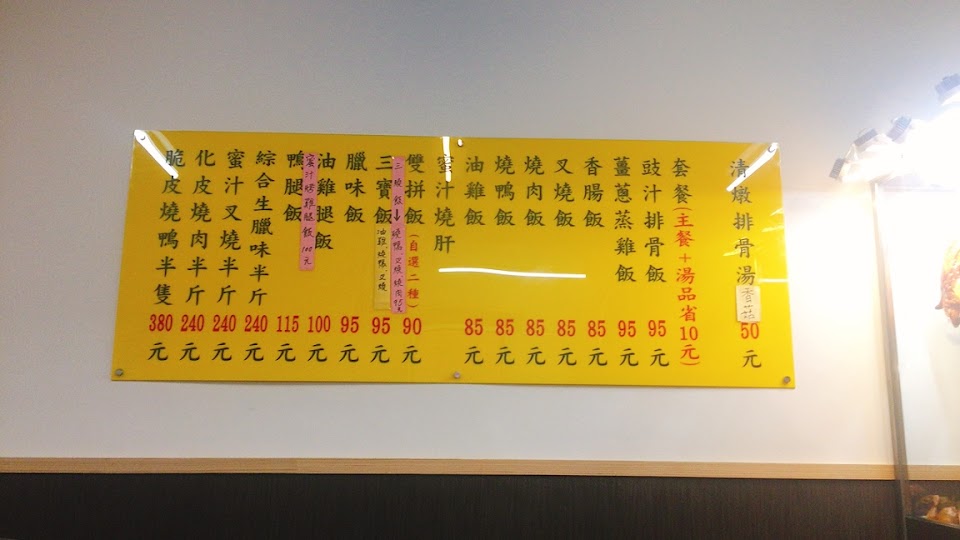 清燉排骨湯 50元
香菇
套餐(主餐+湯品省10元)
豉汁排骨飯 95元
薑蔥蒸雞飯 95元
香腸飯 85元
叉燒飯 85元
燒肉飯 85元
燒鴨飯 85元
油雞飯 85元
蜜汁燒肝
雙拼飯(自選二種) 90元
三燒飯→燒鴨、叉燒、燒肉95元
三寶飯 95元
油雞、燒鴨、叉燒
臘味飯 95元
油雞腿飯 100元
蜜汁烤雞腿飯 100元
鴨腿飯 115元
綜合生臘味半斤 240元
蜜汁叉燒半斤 240元
化皮燒肉半斤 240元
脆皮燒鴨半隻 380元